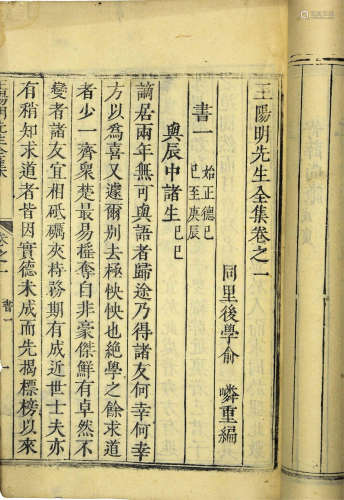 王陽明先生全集卷之一
同里後學俞嶙重編
書一
始正德己
巳至庚辰
與辰中諸生
己巳
謫居兩年無可與語者歸途乃得諸友何幸何幸
方以為喜又遽爾別去極怏怏也絶學之餘求道
者少一齊衆楚最易摇奪自非豪傑鮮有卓然不
變者諸友宜相砥礪夾持務期有成近世士夫亦
有稍知求道者皆因實德未成而先揭標榜以來
王陽明先生全集
卷之一
書一